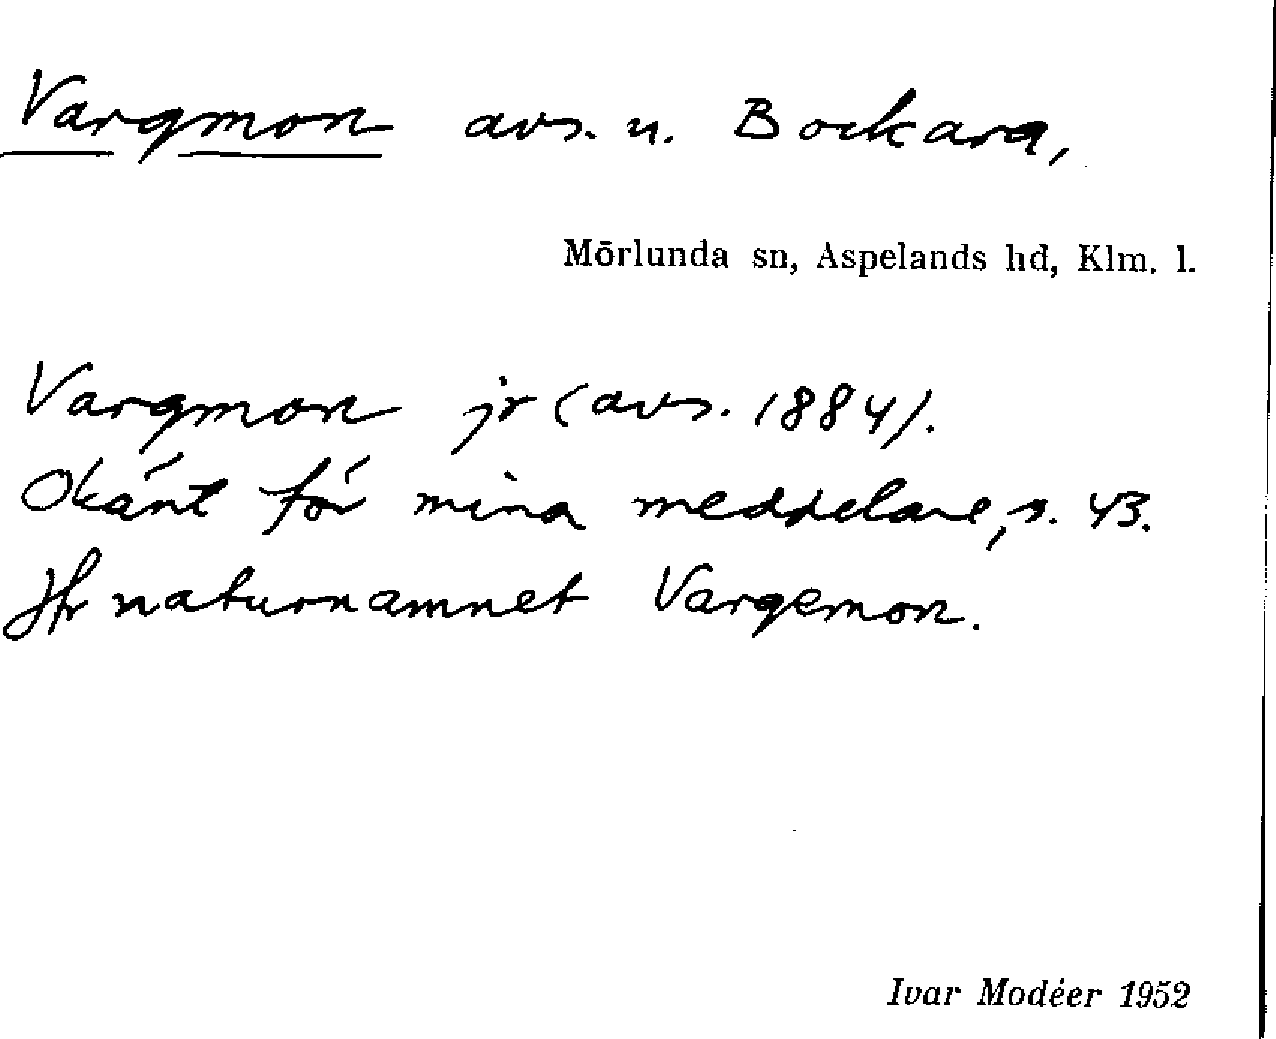 Vargmon avs. u. Bockara,
Mörlunda sn, Aspelands hd, Klm. l.
Vargmon jr (avs. 1884).
Okänt för mina meddelare, s. 43.
Jfr naturnamnet Vargemon.
Ivar Modéer 1952